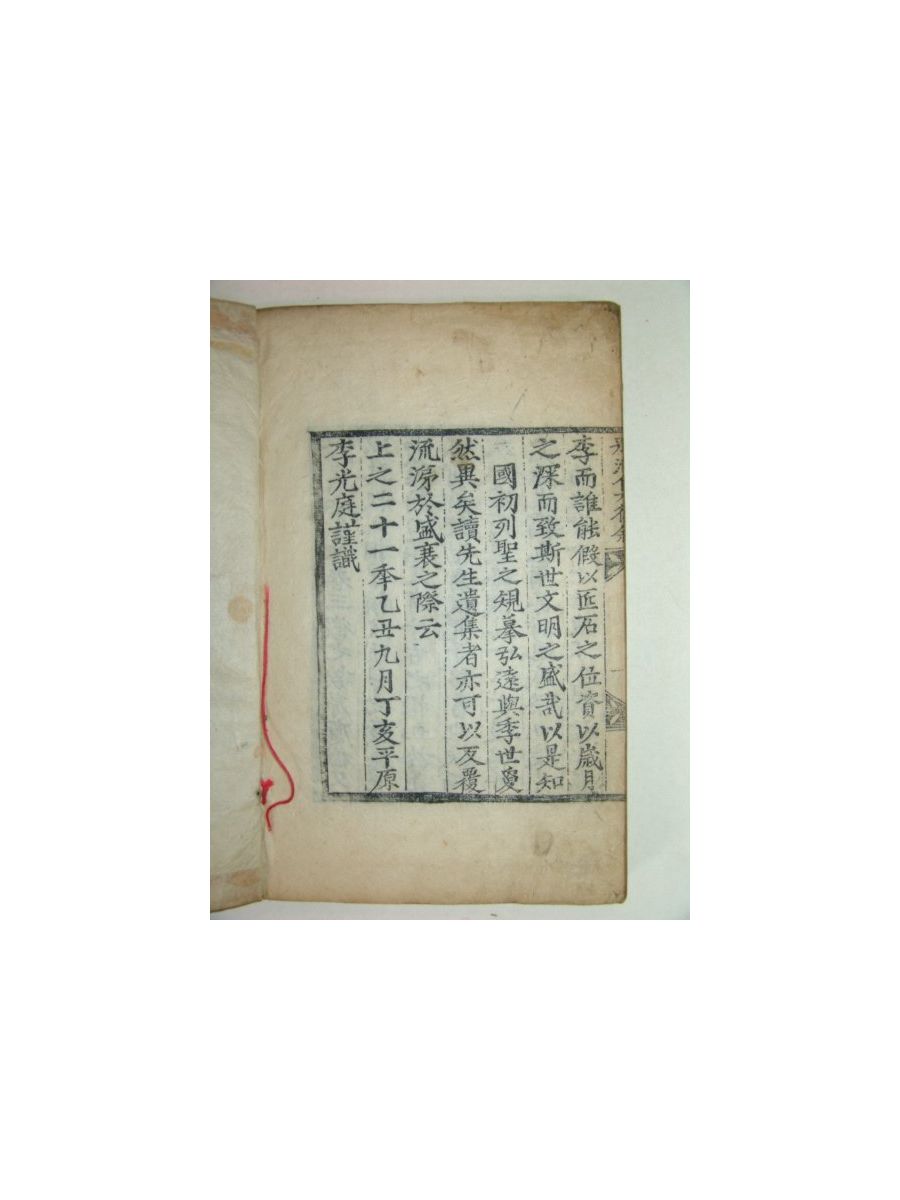 李而誰能假以匝石之位資以歲月
之深而致斯世文明之盛哉以是知
國初列聖之規摹弘遠與季世敻
然異矣讀先生遺集者亦可以反覆
流涕於盛衰之際云
上之二十一年乙丑九月丁亥平原
李光庭謹識